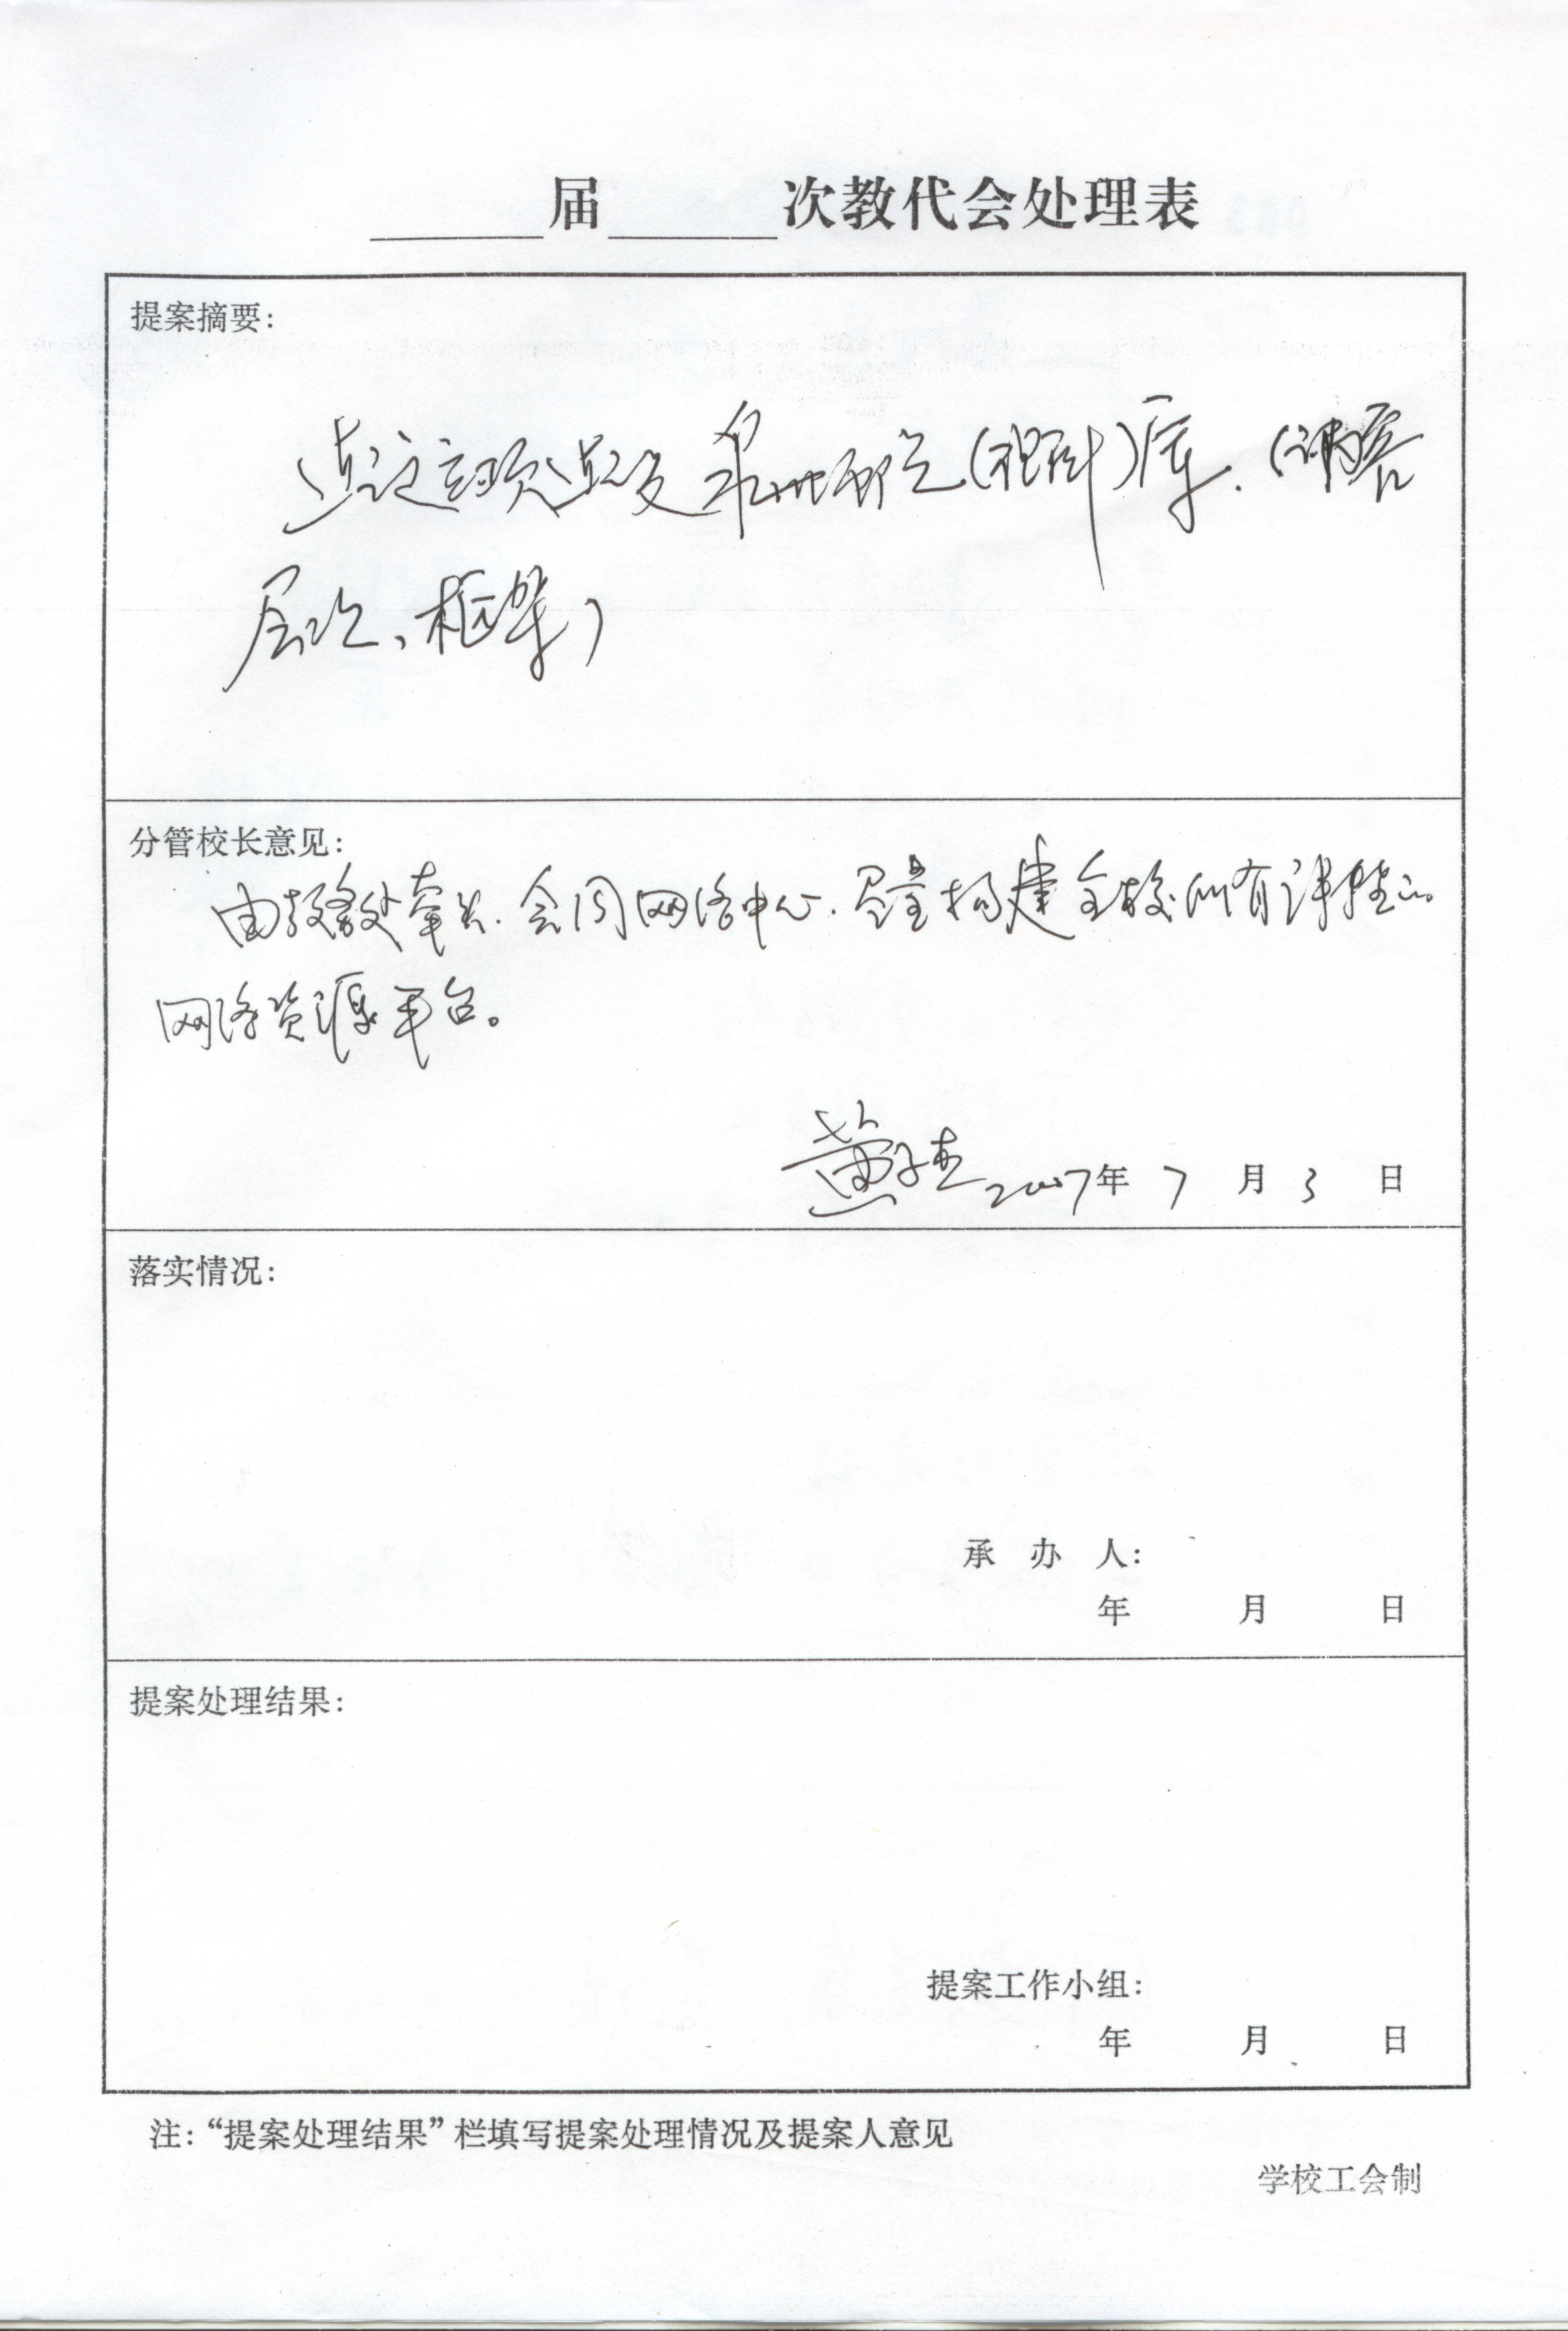 届 次教代会处理表
提案摘要：
库.（内容
层次、框架）
分管校长意见：
由教务处牵头.会同网络中心.尽量构建全校所有课程的
网络资源平台。
黄 2007年 7 月 3 日
落实情况：
承 办 人：
年 月 日
提案处理结果：
提案工作小组：
年 月 日
注：“提案处理结果”栏填写提案处理情况及提案人意见
学校工会制